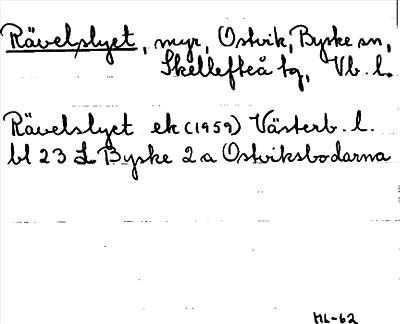 Rävelslyet, myr, Ostvik, Byske sn,
Skellefteå tg, Vb. l.
Rävelslyet ek (1959) Västerb. l.
bl 23 L Byske 2 a Ostviksbodarna
HL-62